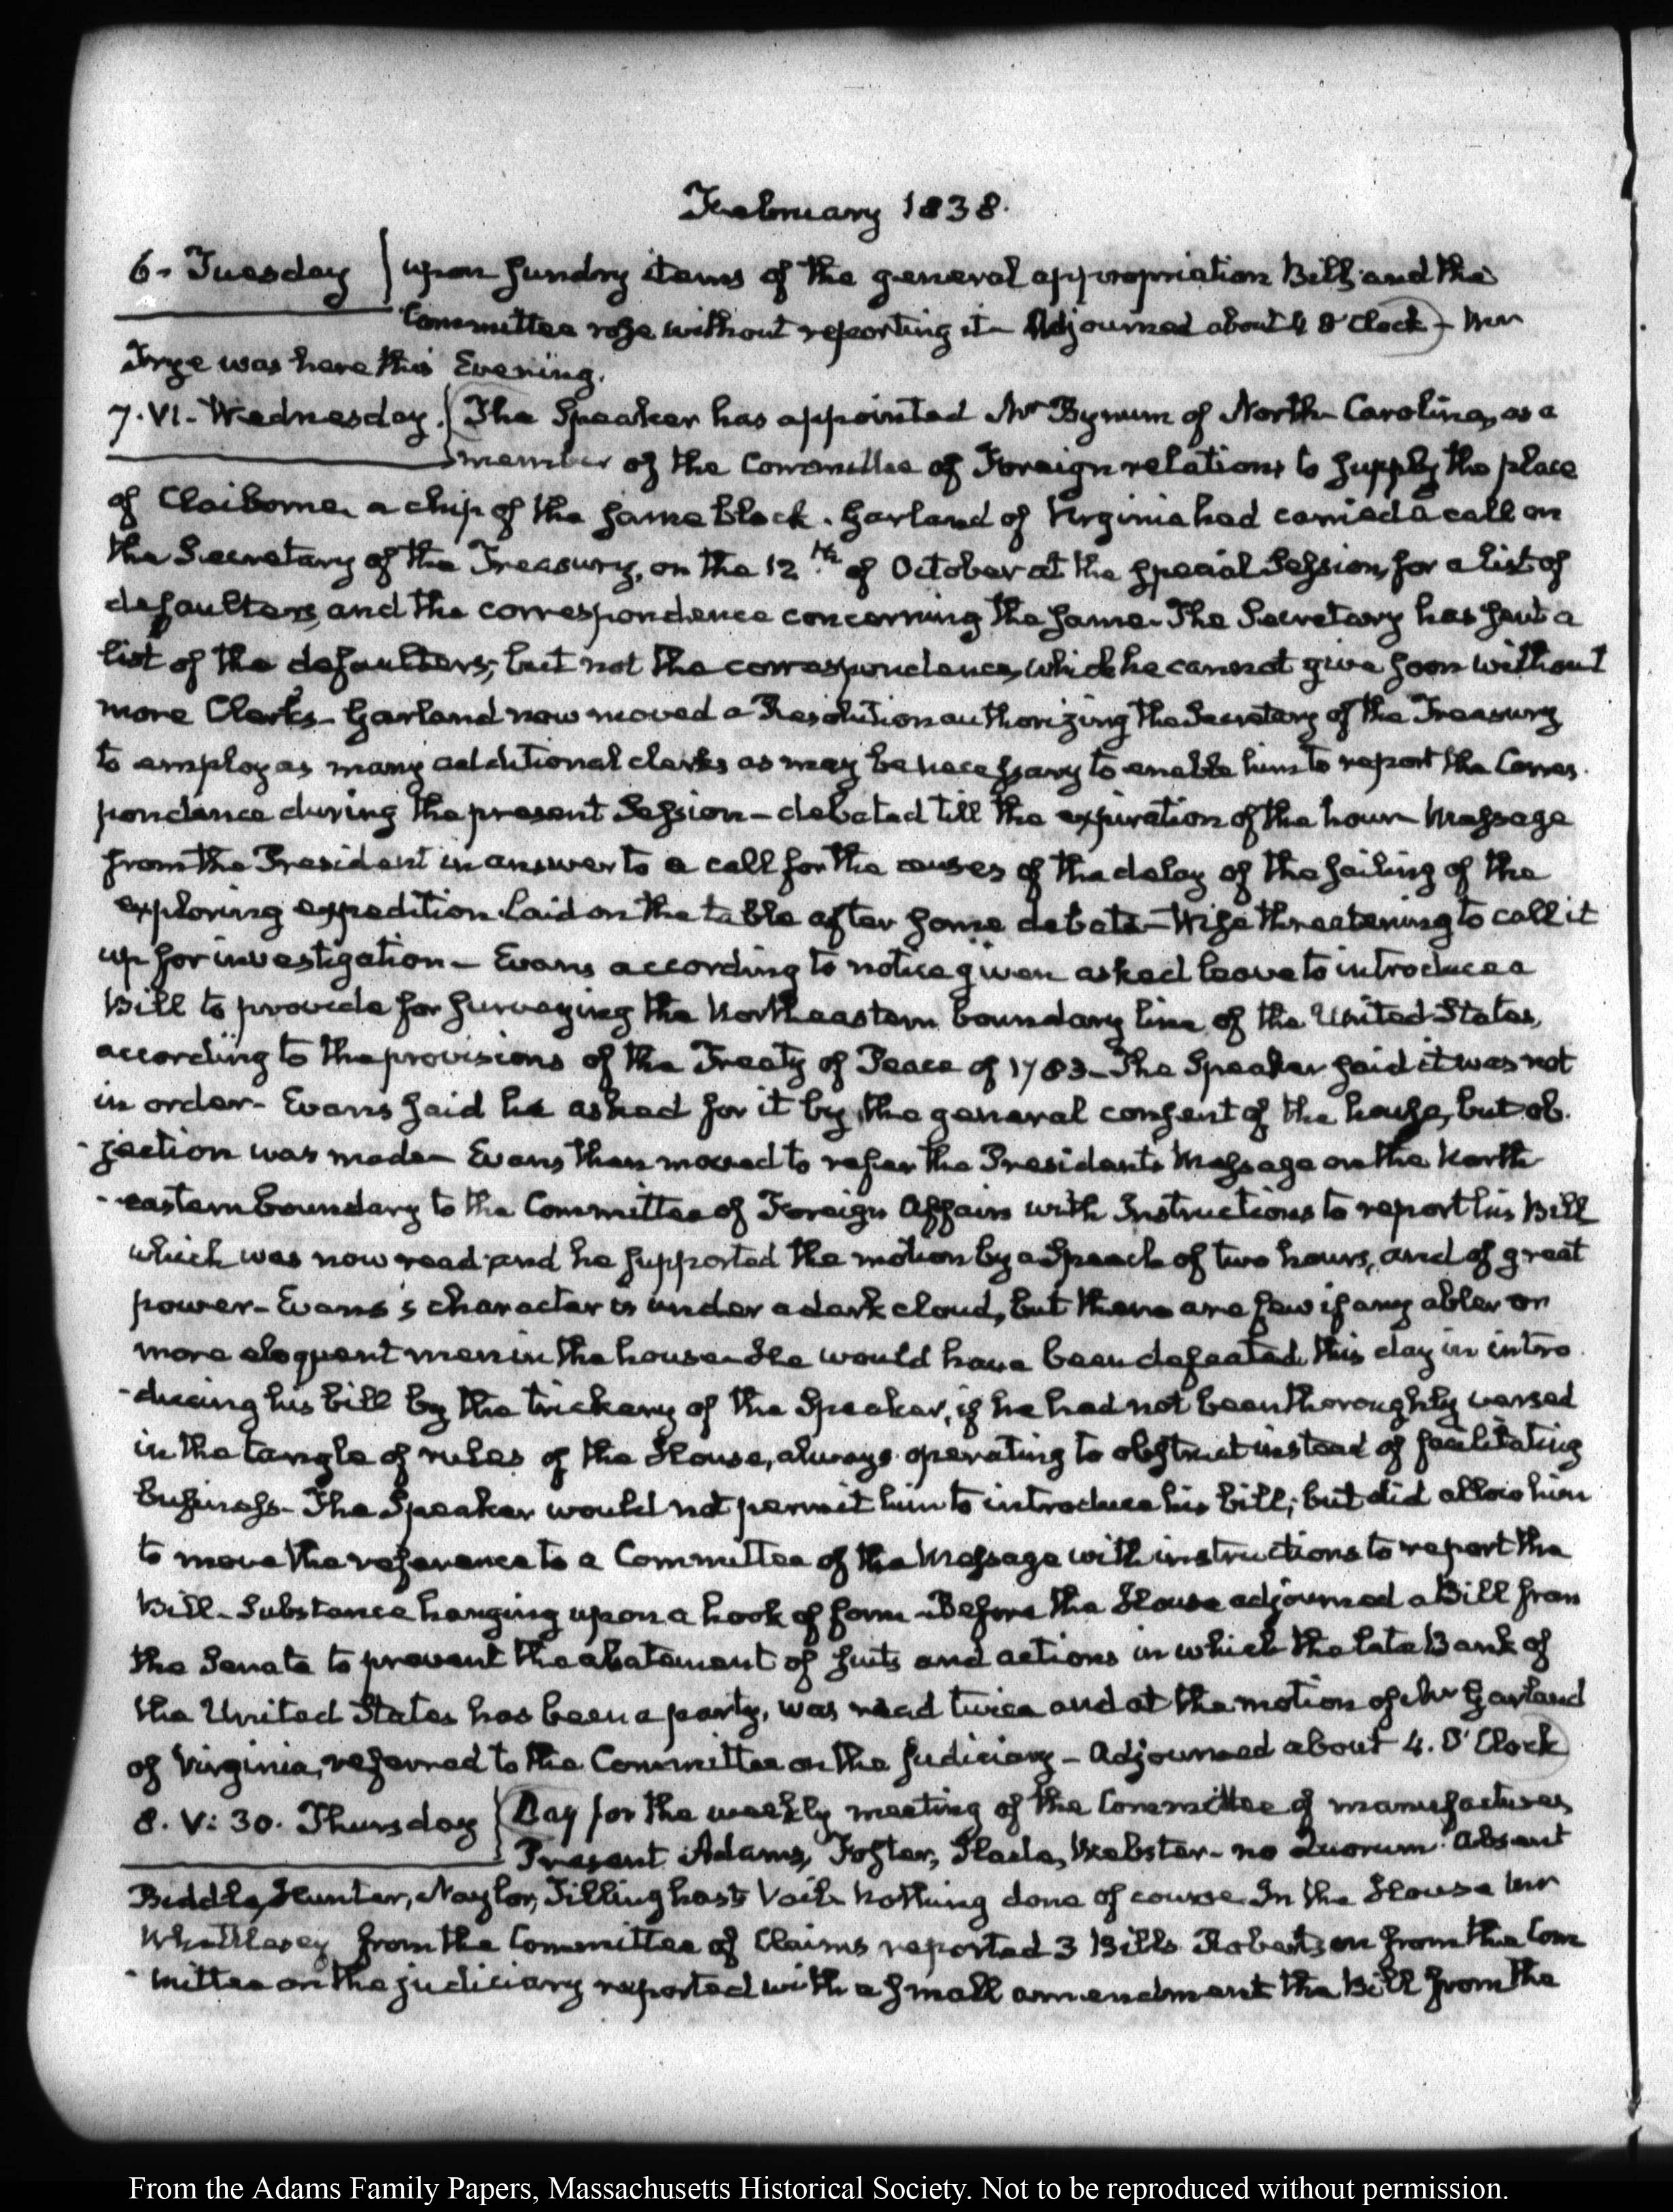 February 1838.
6. Tuesday upon sundry items of the general appropriation Bill, and the
Committee rose without reporting it – Adjourned about 4 O'Clock – Mr
Frye was here this Evening.
7. VI. Wednesday. The Speaker has appointed Mr Bynum of North-Carolina, as a
member of the Committee of Foreign relations to supply the place
of Claiborne, a chip of the same block. Garland of Virginia had carried a call on
the Secretary of the Treasury, on the 12th of October at the special Session, for a list of
defaulters, and the correspondence concerning the same. The Secretary has sent a
list of the defaulters; but not the correspondence, which he cannot give soon without
more Clerks – Garland now moved a Resolution authorizing the Secretary of the Treasury
to employ as many additional clerks as may be necessary to enable him to report the Corres-
pondence during the present Session – debated till the expiration of the hour – Message
from the President in answer to a call for the causes of the delay of the sailing of the
exploring expedition. Laid on the table after some debate – Wise threatening to call it
up for investigation – Evans according to notice given asked leave to introduce a
Bill to provide for surveying the Northeastern boundary line of the United States,
according to the provisions of the Treaty of Peace of 1783 – The Speaker said it was not
in order – Evans said he asked for it by the general consent of the house, but ob-
-jection was made – Evans then moved to refer the President's Message on the North-
-eastern boundary to the Committee of Foreign Affairs with Instructions to report his Bill
which was now read and he supported the motion by a Speech of two hours, and of great
power – Evans's character is under a dark cloud, but there are few if any abler or
more eloquent men in the house – He would have been defeated this day in intro-
-ducing his bill by the trickery of the Speaker, if he had not been thoroughly versed
in the tangle of rules of the House, always operating to obstruct instead of facilitating
business – The Speaker would not permit him to introduce his bill; but did allow him
to move the reference to a Committee of the Message with instructions to report the
Bill – Substance hanging upon a hook of form – Before the House adjourned a Bill from
the Senate to prevent the abatement of suits and actions in which the late Bank of
the United States has been a party, was read twice and at the motion of Mr Garland
of Virginia, referred to the Committee on the Judiciary – Adjourned about 4. O'Clock
8. V: 30. Thursday Day for the weekly meeting of the Committee of manufactures
Present Adams, Foster, Slade, Webster – no Quorum. Absent
Biddle, Hunter, Naylor, Tillinghast, Vail. Nothing done of course. In the House Mr
Whittlesey from the Committee of Claims reported 3 Bills. Robertson from the Com
-mittee on the judiciary reported with a small amendment the Bill from the
From the Adams Family Papers, Massachusetts Historical Society. Not to be reproduced without permission.